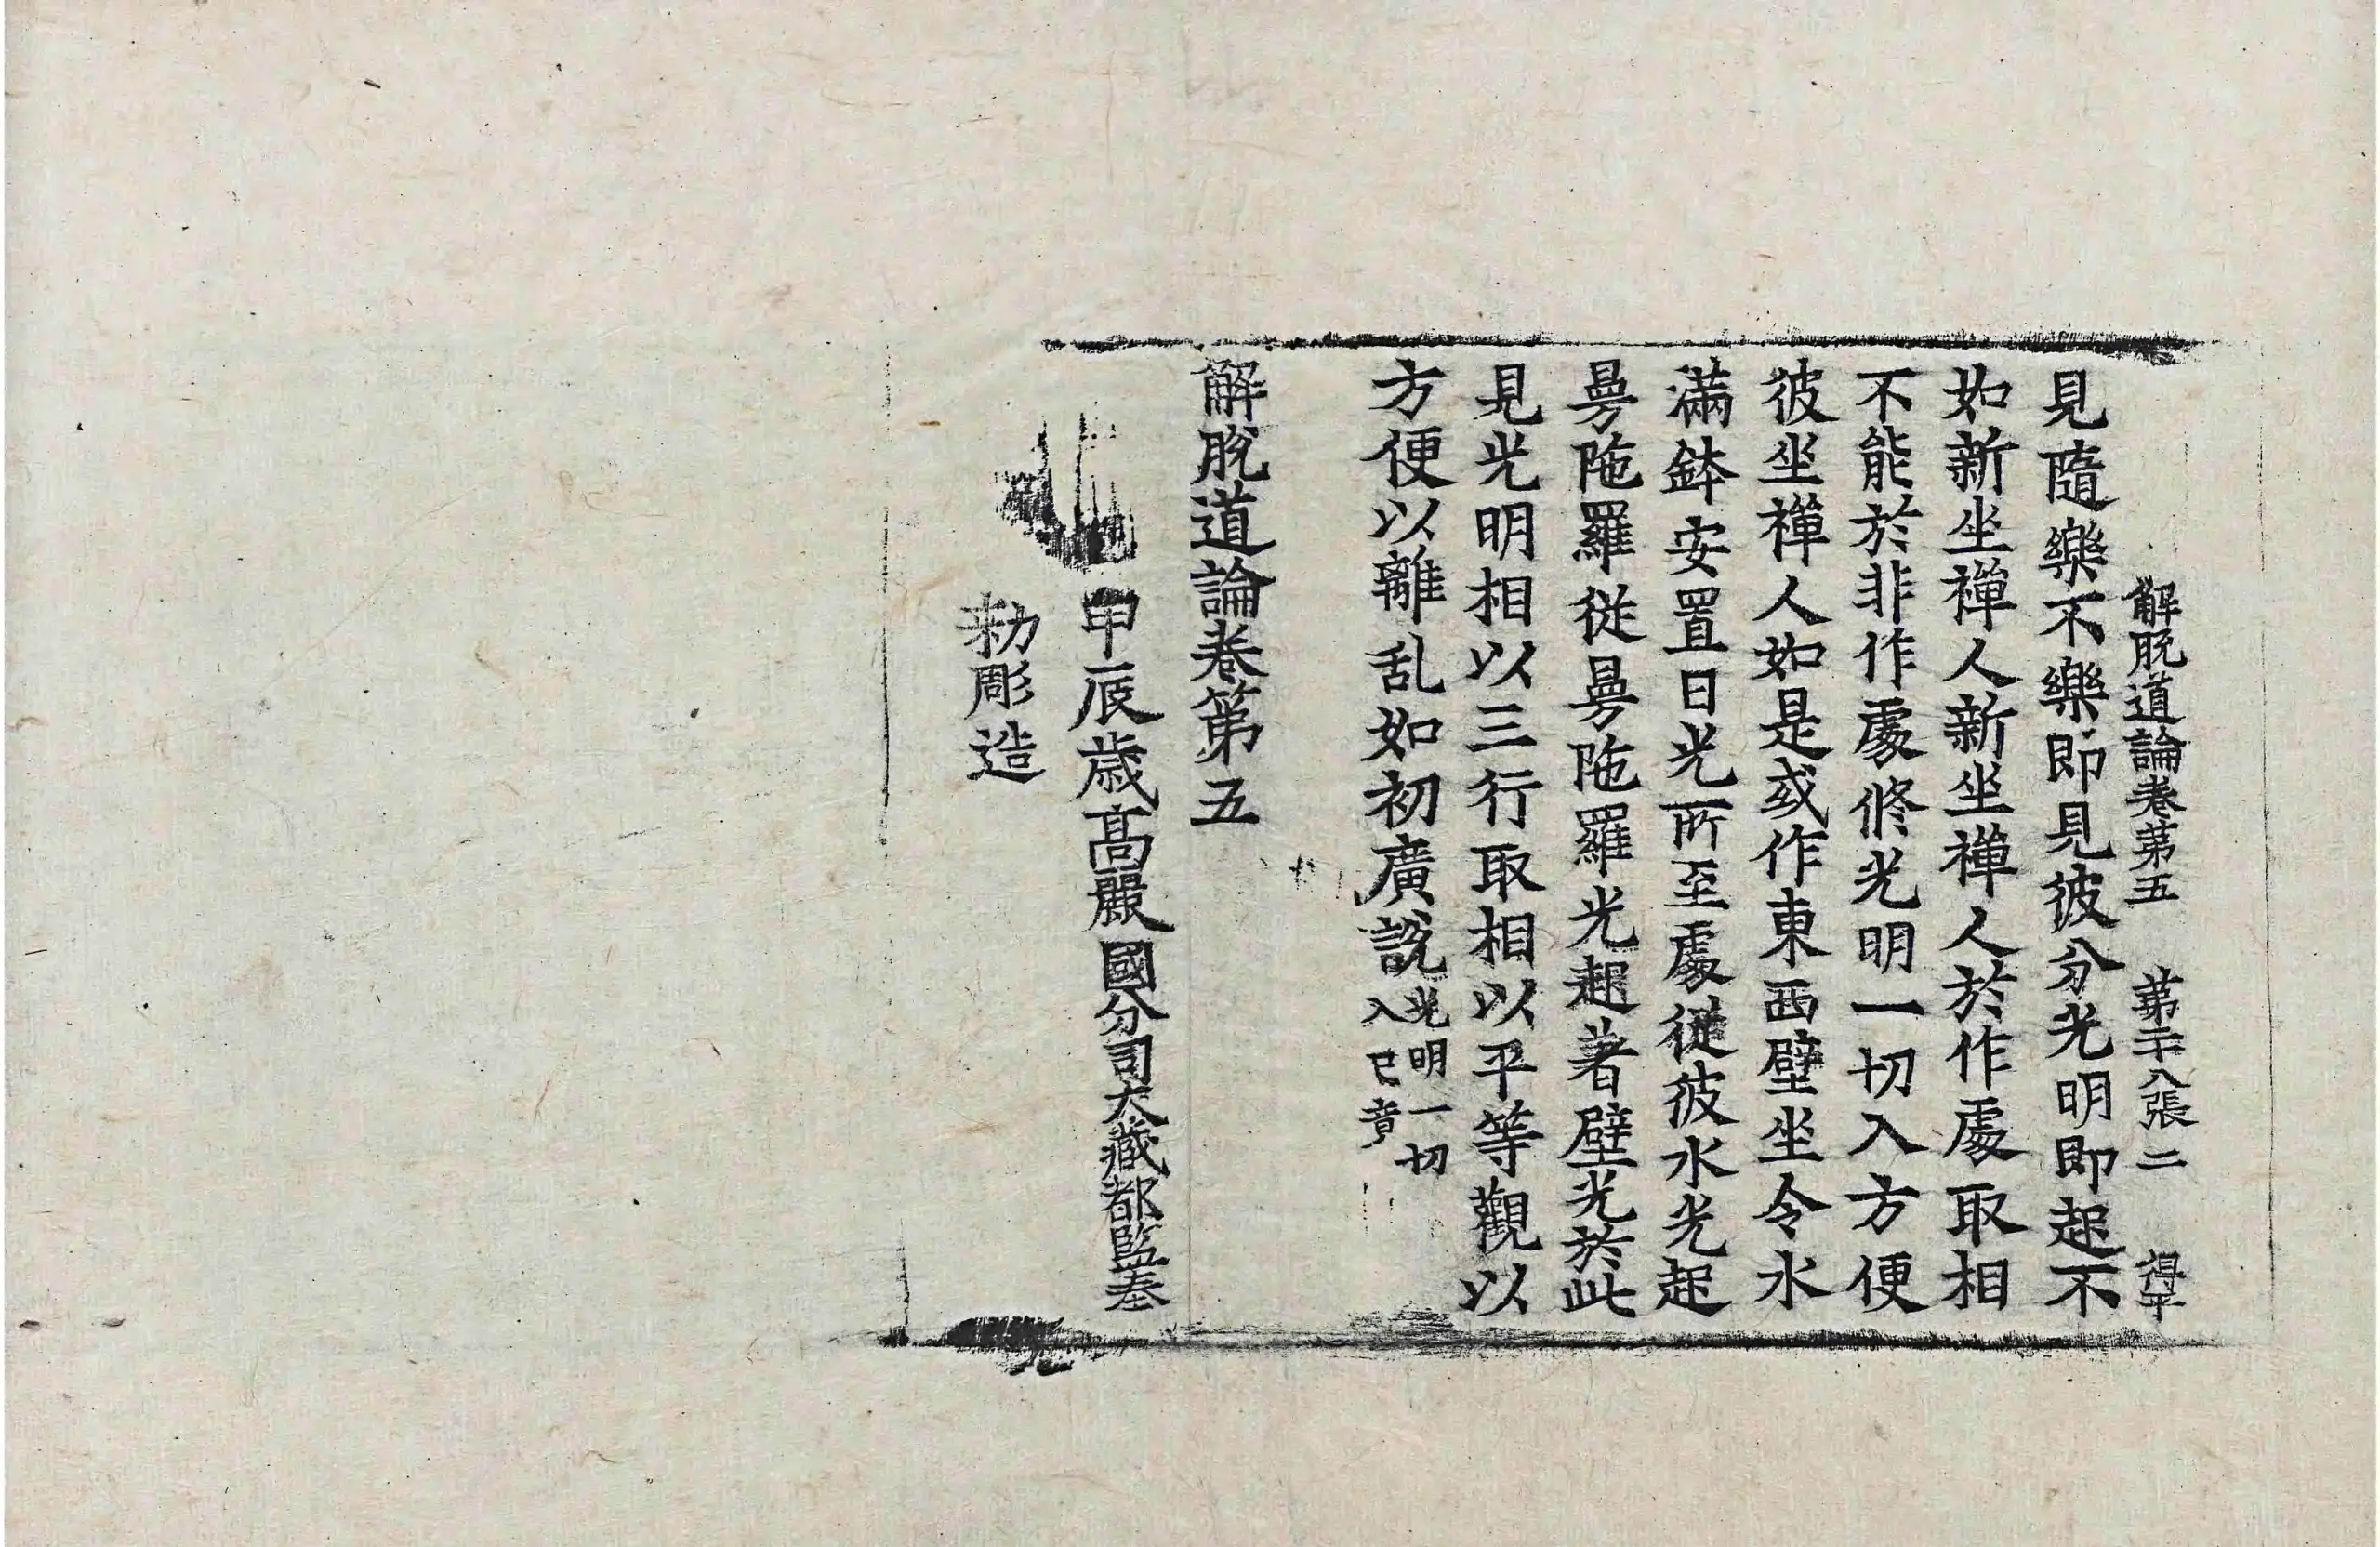 解脫道論卷第五 第二十八張 二 得平
見隨樂不樂即見彼分光明即起不
如新坐禪人新坐禪人於作處取相
不能於非作處修光明一切入方便
彼坐禪人如是或作東西壁坐令水
滿鉢安置日光所至處從彼水光起
曼陁羅從曼陁羅光起著壁光於此
見光明相以三行取相以平等觀以
方便以離乱如初廣說光明一切
入已竟
解脫道論卷第五
甲辰歲高麗國分司大藏都監奉
勑彫造